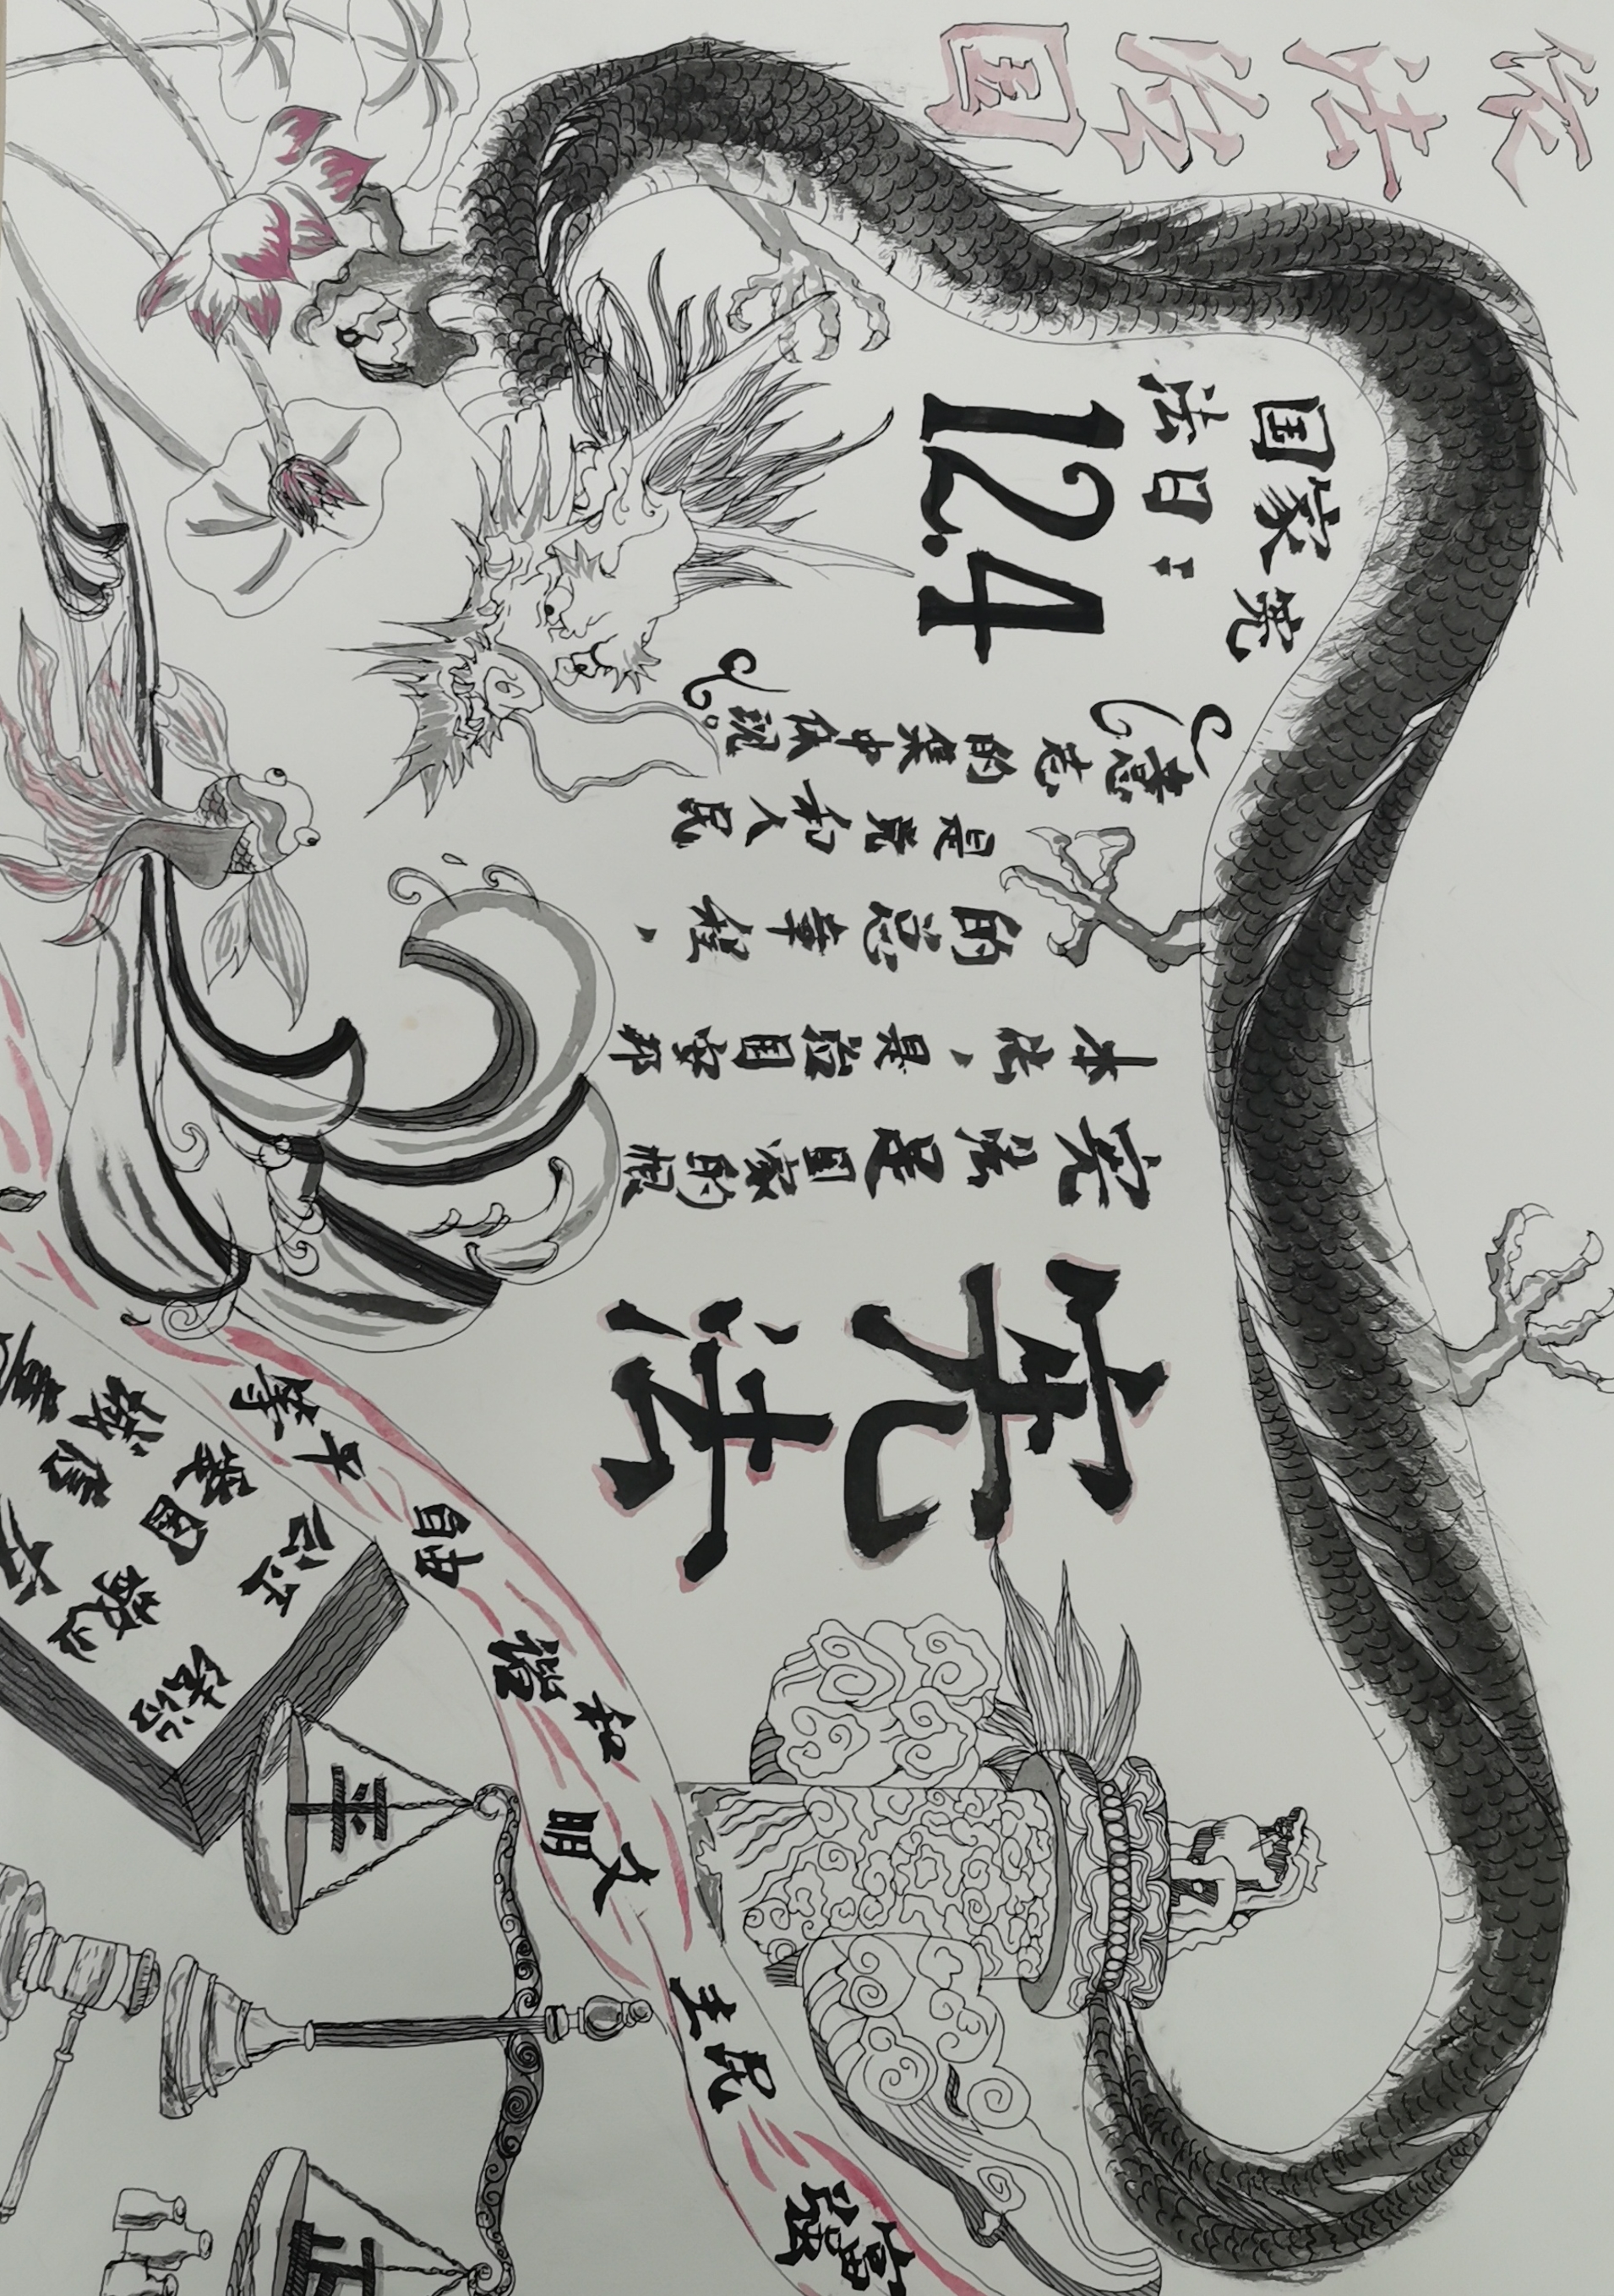 依法治国
国家宪
法日：
12.4
宪法
宪法是国家的根
本法，是治国安邦
的总章程，
是党和人民
意志的集中体现。
富强
民主
文明
和谐
自由
平等
公正
法治
爱国
敬业
诚信
平
正